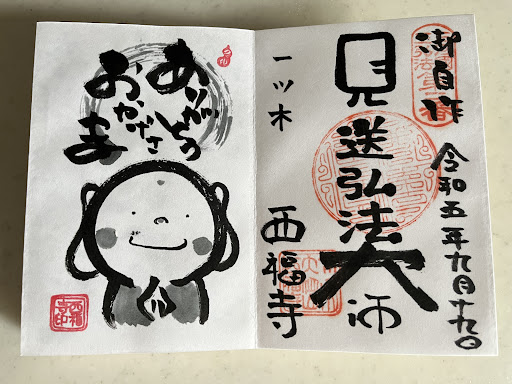 御自作
令和五年九月十九日
見送弘法大師
一ツ木
西福寺
ありがとう
おかげさま